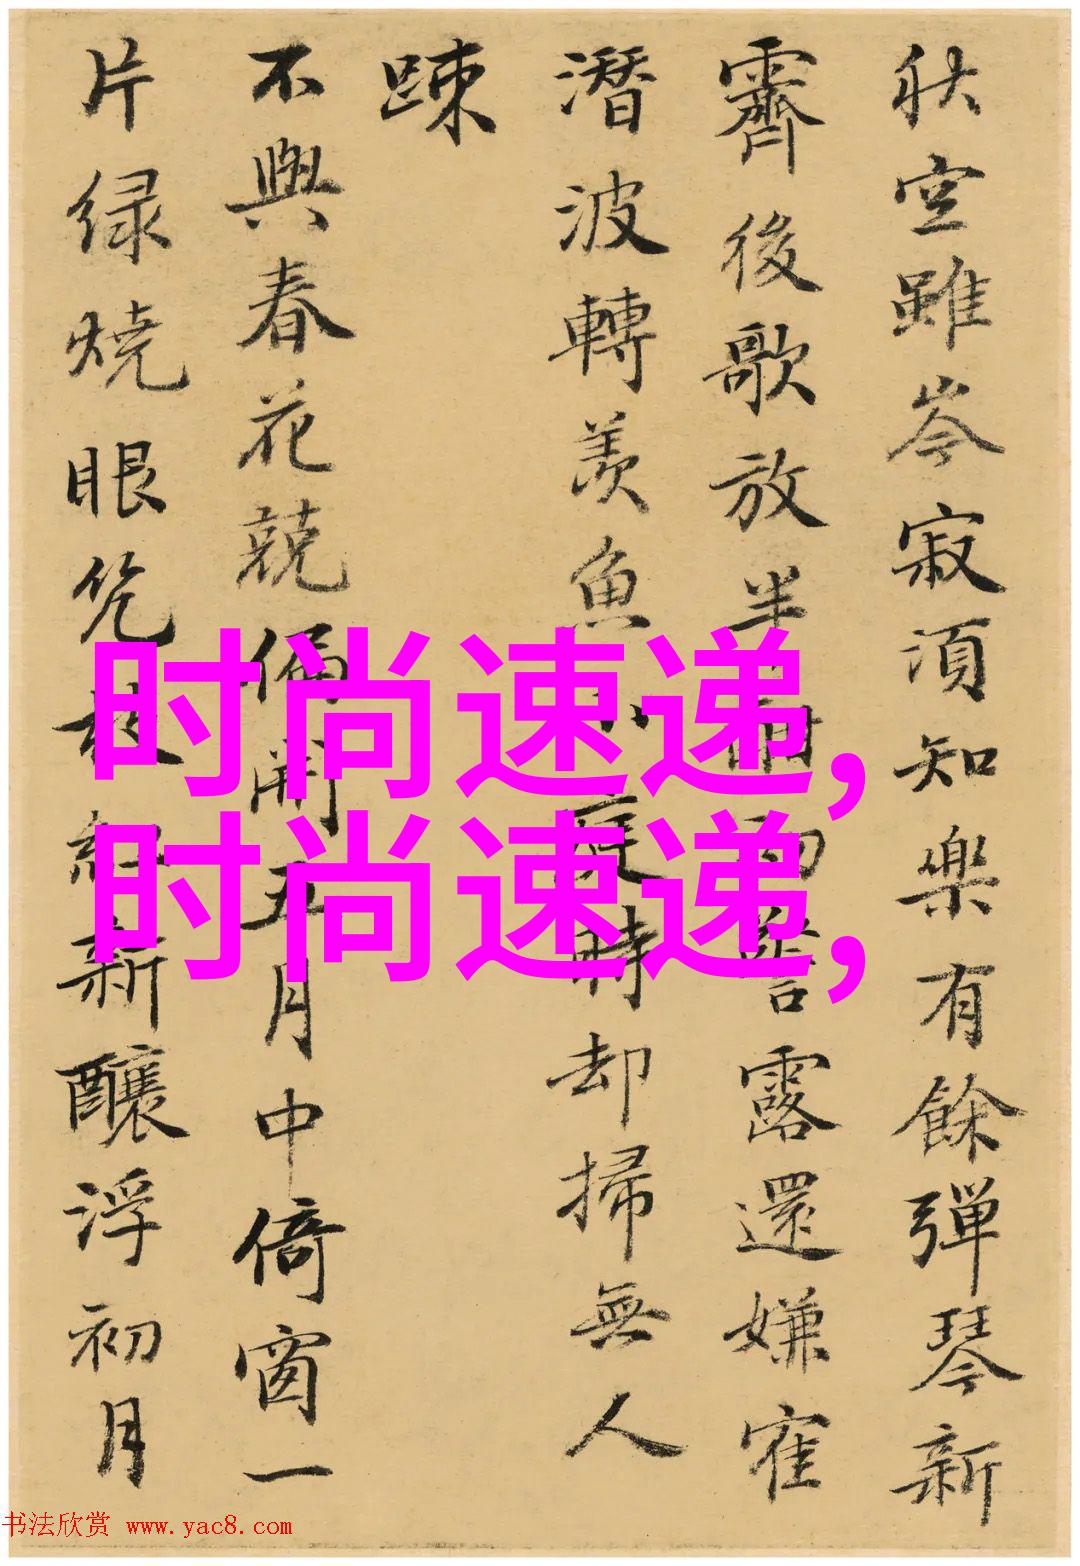 秋空雖岑寂須知樂有餘彈琴新
霽後歌放半酣初警露還嫌寉
潛波轉羨魚小庭時却掃無人
踈
不與春花競偏開五月中倚窗一
片绿燒眼幾枝紅新釀浮初月
时尚速递,
时尚速递,
书法欣赏 www.yac8.com